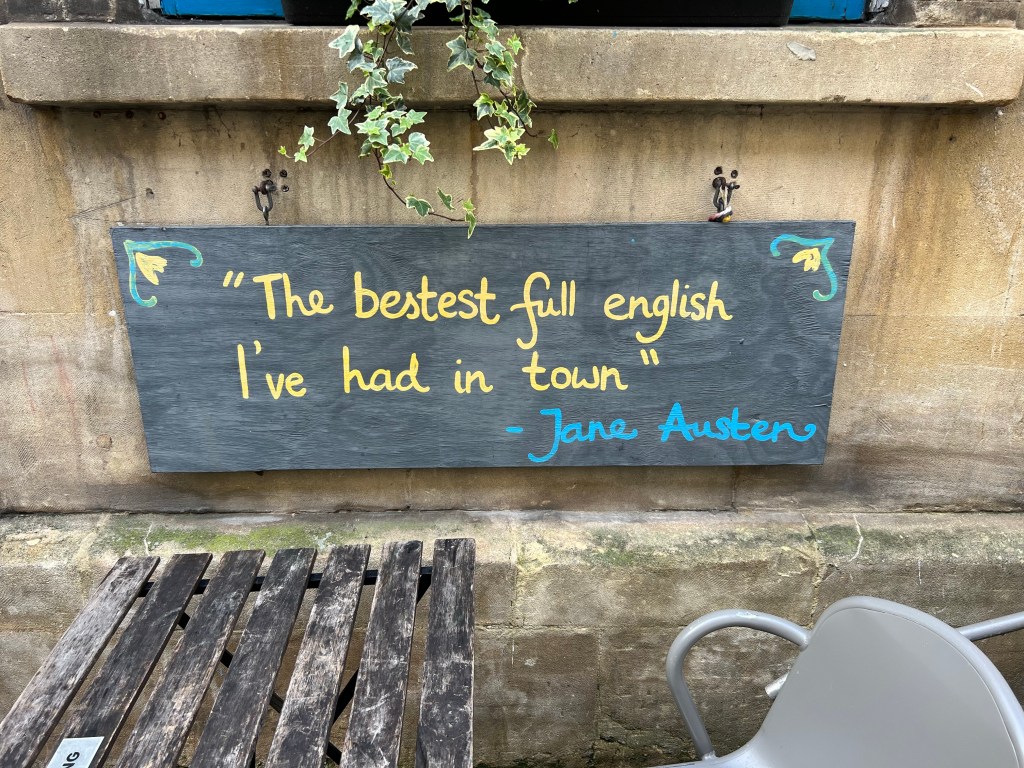 "The bestest full english
I've had in town"
- Jane Austen
NG